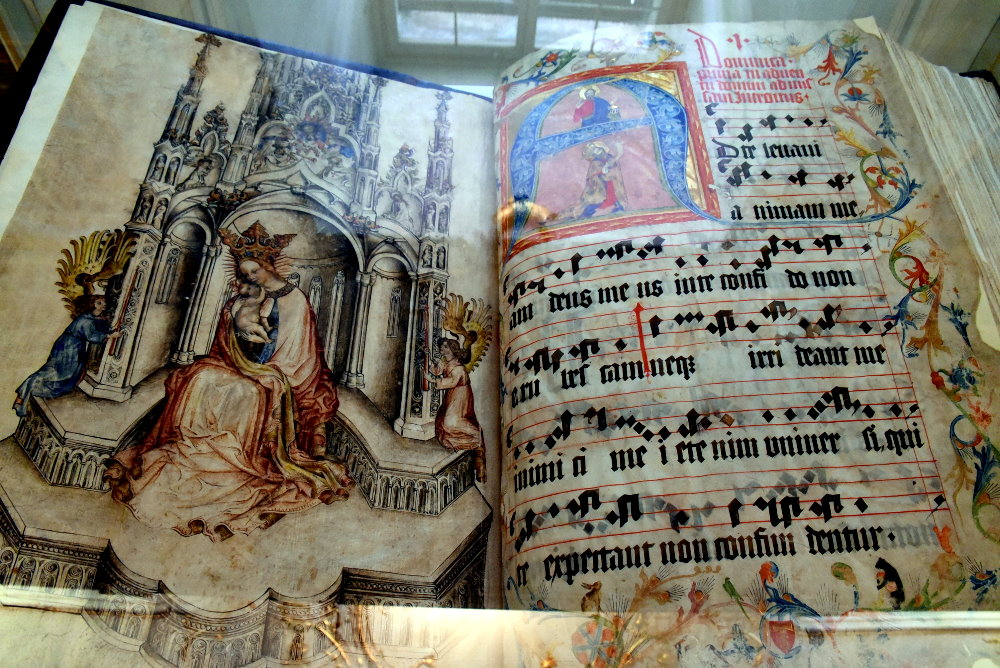 ·1·
Dominica·
prima in adven
tu domini ad mis
sam Introitus·
A
Dte levavi
a nimam me
am deus me us inte confi do non
eru bes cam neqꝫ irri deant me
inimi ci me i ete nim univer si, qui
te expectant non confun dentur·